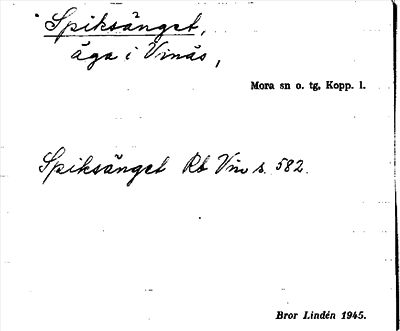 Spiksänget,
äga i Vinäs,
Mora sn o. tg, Kopp. l.
Spiksänget Rb Vin s. 582.
Bror Lindén 1945.